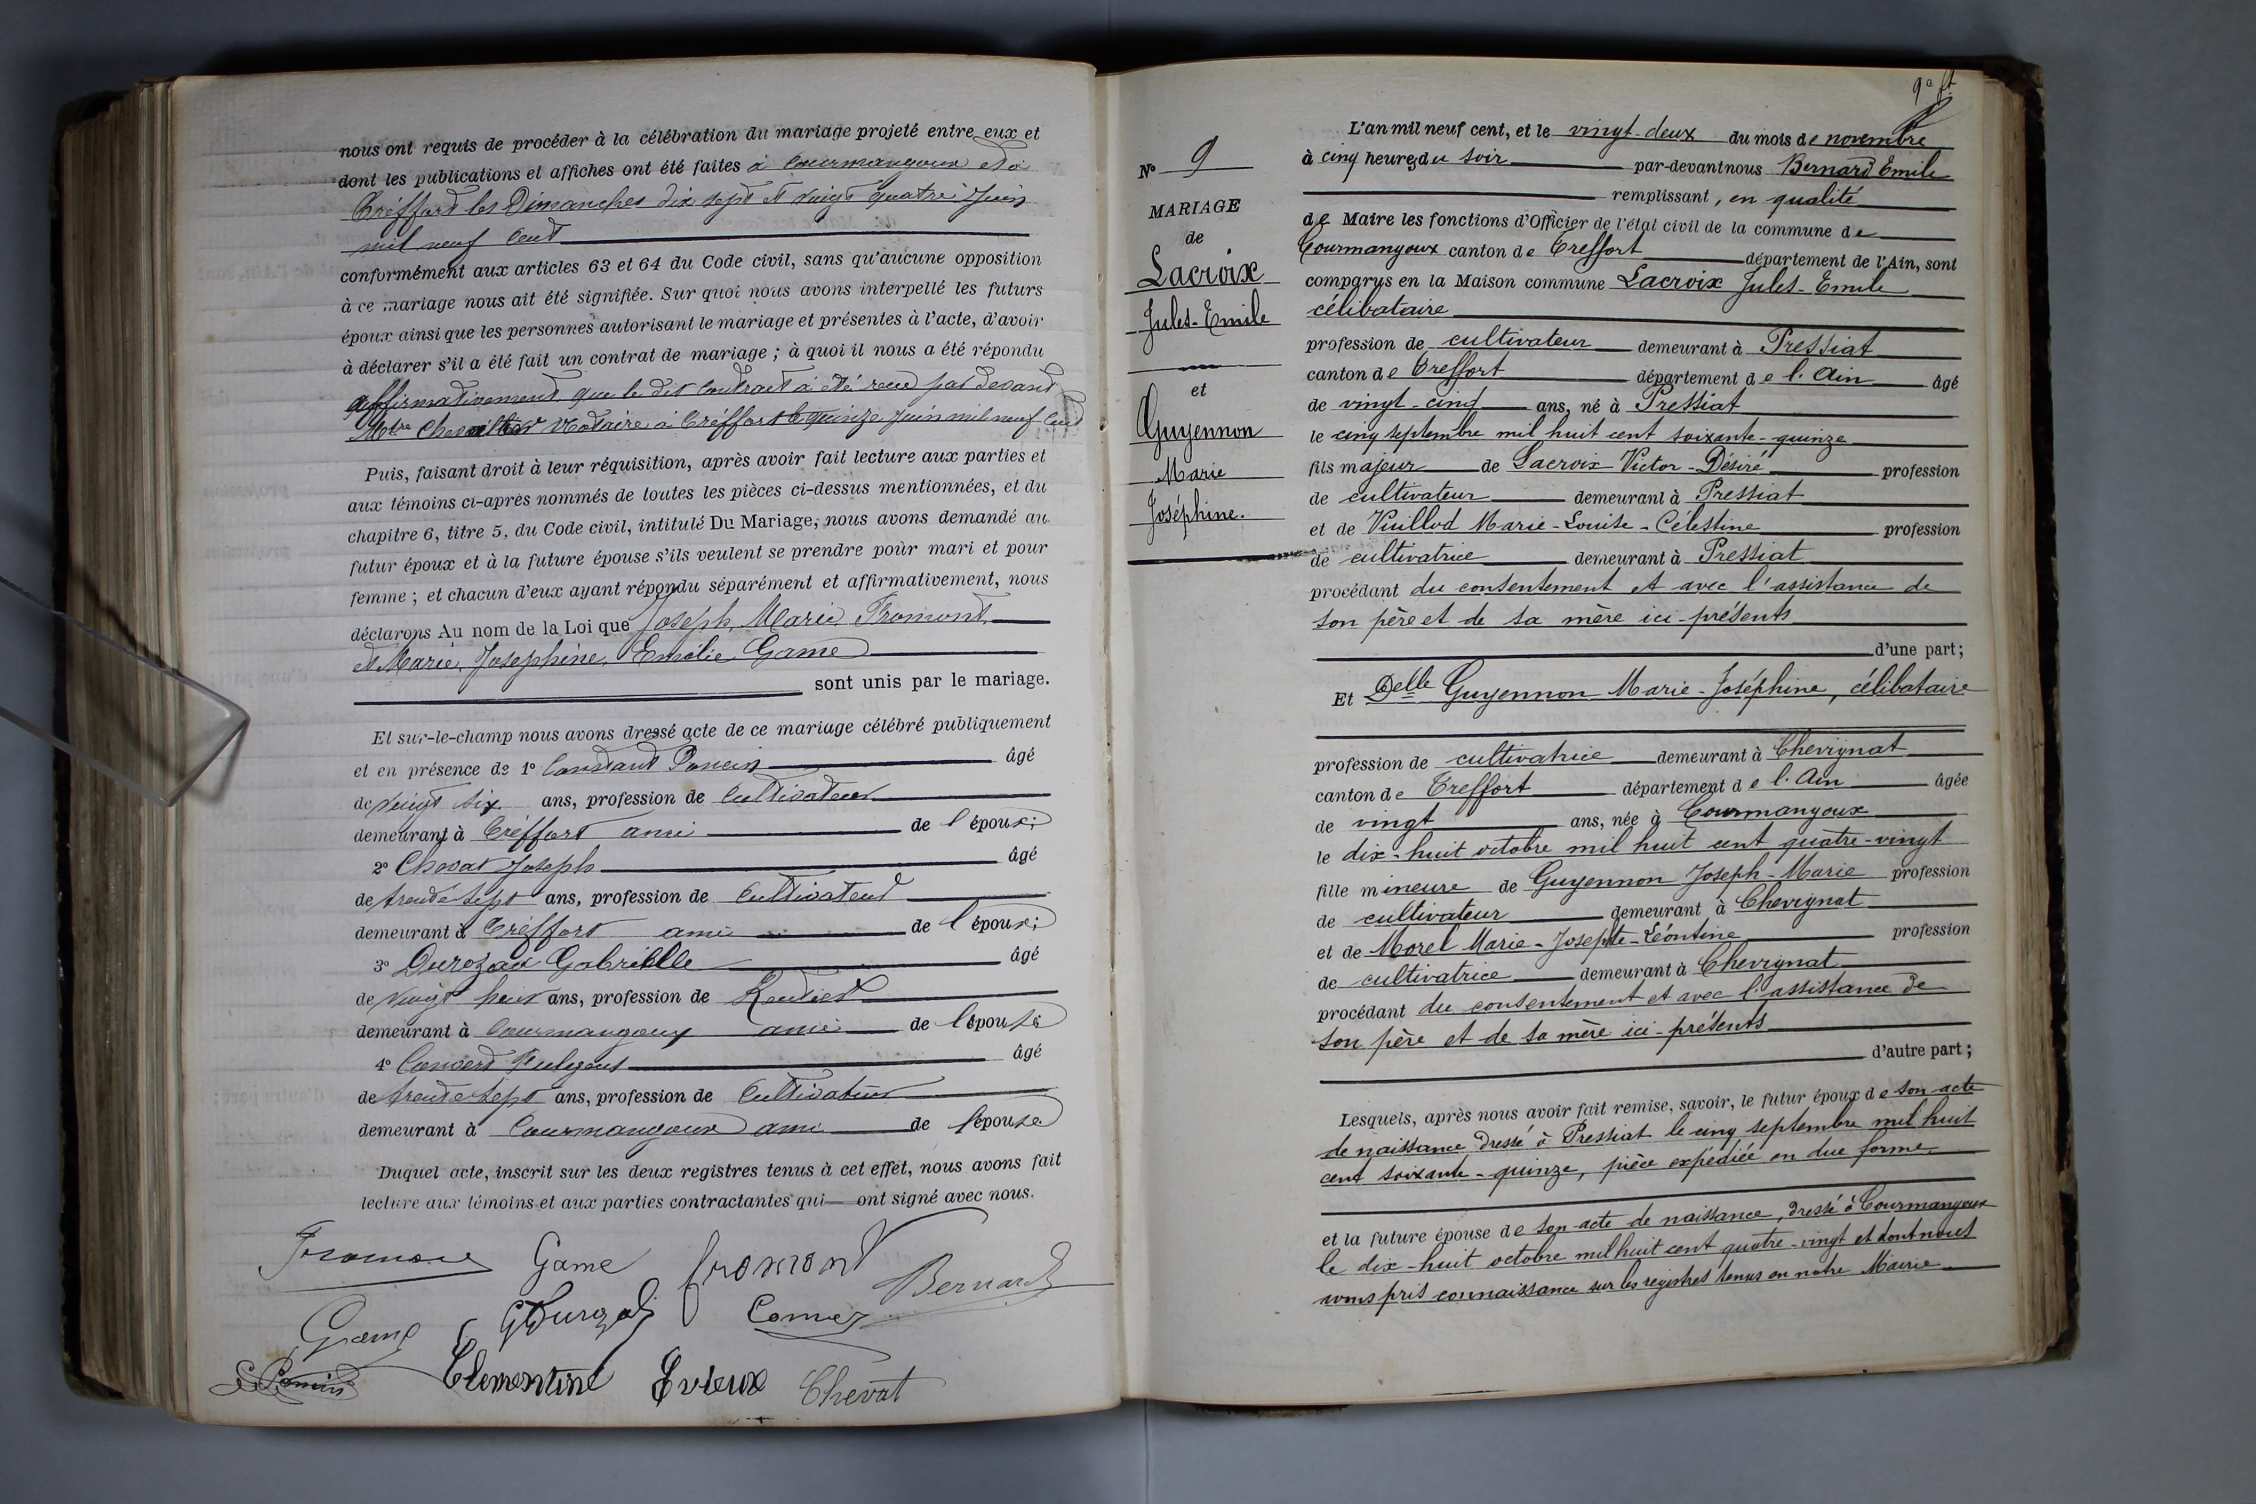 nous ont requis de procéder à la célébration du mariage projeté entre eux et
dont les publications et affiches ont été faites à Courmangoux et à
Tréffort les Dimanches dix sept et vingt quatre Juin
mil neuf Cent
conformément aux articles 63 et 64 du Code civil, sans qu'aucune opposition
à ce mariage nous ait été signifiée. Sur quoi nous avons interpellé les futurs
époux ainsi que les personnes autorisant le mariage et présentes à l'acte, d'avoir
à déclarer s'il a été fait un contrat de mariage ; à quoi il nous a été répondu
affirmativement que le dit Contrat à été reçu par devant
Mtre Notaire à Tréffort le quinze Juin mil neuf Cent
Puis, faisant droit à leur réquisition, après avoir fait lecture aux parties et
aux témoins ci-après nommés de toutes les pièces ci-dessus mentionnées, et du
chapitre 6, titre 5, du Code civil, intitulé Du Mariage, nous avons demandé au
futur époux et à la future épouse s'ils veulent se prendre pour mari et pour
femme ; et chacun d'eux ayant répondu séparément et affirmativement, nous
déclarons Au nom de la Loi que Joseph, Marie Fromont
et Marie, Josephine, Emélie Game
sont unis par le mariage.
Et sur-le-champ nous avons dressé acte de ce mariage célébré publiquement
et en présence de 1° Constant Poncin âgé
de vingt six ans, profession de Cultivateur
demeurant à Tréffort ami de l'époux;
2° Chevat Joseph âgé
de trente sept ans, profession de Cultivateur
demeurant à Tréffort ami de l'époux;
3° Durozat Gabrielle âgé
de vingt huit ans, profession de Rentier
demeurant à Courmangoux ami de l'épouse
4° Convert âgé
de trente sept ans, profession de Cultivateur
demeurant à Courmangoux ami de l'épouse
Duquel acte, inscrit sur les deux registres tenus à cet effet, nous avons fait
lecture aux témoins et aux parties contractantes qui ont signé avec nous.
Game fromont Bernard
Game
Clementine Evieux Chevat
9e ft
N° 9
MARIAGE
de
Lacroix
Jules-Emile
et
Guyennon
Marie
Joséphine.
L'an mil neuf cent, et le vingt-deux du mois de novembre
à cinq heures du soir par-devant nous Bernard Emile
remplissant, en qualité
de Maire les fonctions d'Officier de l'état civil de la commune de
Courmangoux canton de Treffort département de l'Ain, sont
comparus en la Maison commune Lacroix Jules-Emile
célibataire
profession de cultivateur demeurant à Pressiat
canton de Treffort département de l'Ain âgé
de vingt-cinq ans, né à Pressiat
le cinq septembre mil huit cent soixante-quinze
fils majeur de Lacroix Victor-Désiré profession
de cultivateur demeurant à Pressiat
et de Vuillod Marie-Louise-Célestine profession
de cultivatrice demeurant à Pressiat
procédant du consentement et avec l'assistance de
son père et de sa mère ici-présents
d'une part;
Et Delle Guyennon Marie-Joséphine, célibataire
profession de cultivatrice demeurant à Chevignat
canton de Treffort département de l'Ain âgée
de vingt ans, née à Courmangoux
le dix-huit octobre mil huit cent quatre-vingt
fille mineure de Guyennon Joseph-Marie profession
de cultivateur demeurant à Chevignat
et de Morel Marie-Josephte-Léontine profession
de cultivatrice demeurant à Chevignat
procédant du consentement et avec l'assistance de
son père et de sa mère ici-présents
d'autre part;
Lesquels, après nous avoir fait remise, savoir, le futur époux de son acte
de naissance dressé à Pressiat le cinq septembre mil huit
cent soixante-quinze, pièce expédiée en due forme
et la future épouse de son acte de naissance, dressé à Courmangoux
le dix-huit octobre mil huit cent quatre-vingt et dont nous
avons pris connaissance sur les registres tenus en notre Mairie